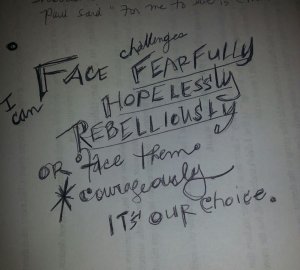 "Paul said" "For me to live is
I can FACE challenges FEARFULLY
HOPELESSLY
REBELLIOUSLY
OR face them
* courageously
IT'S OUR CHOICE.